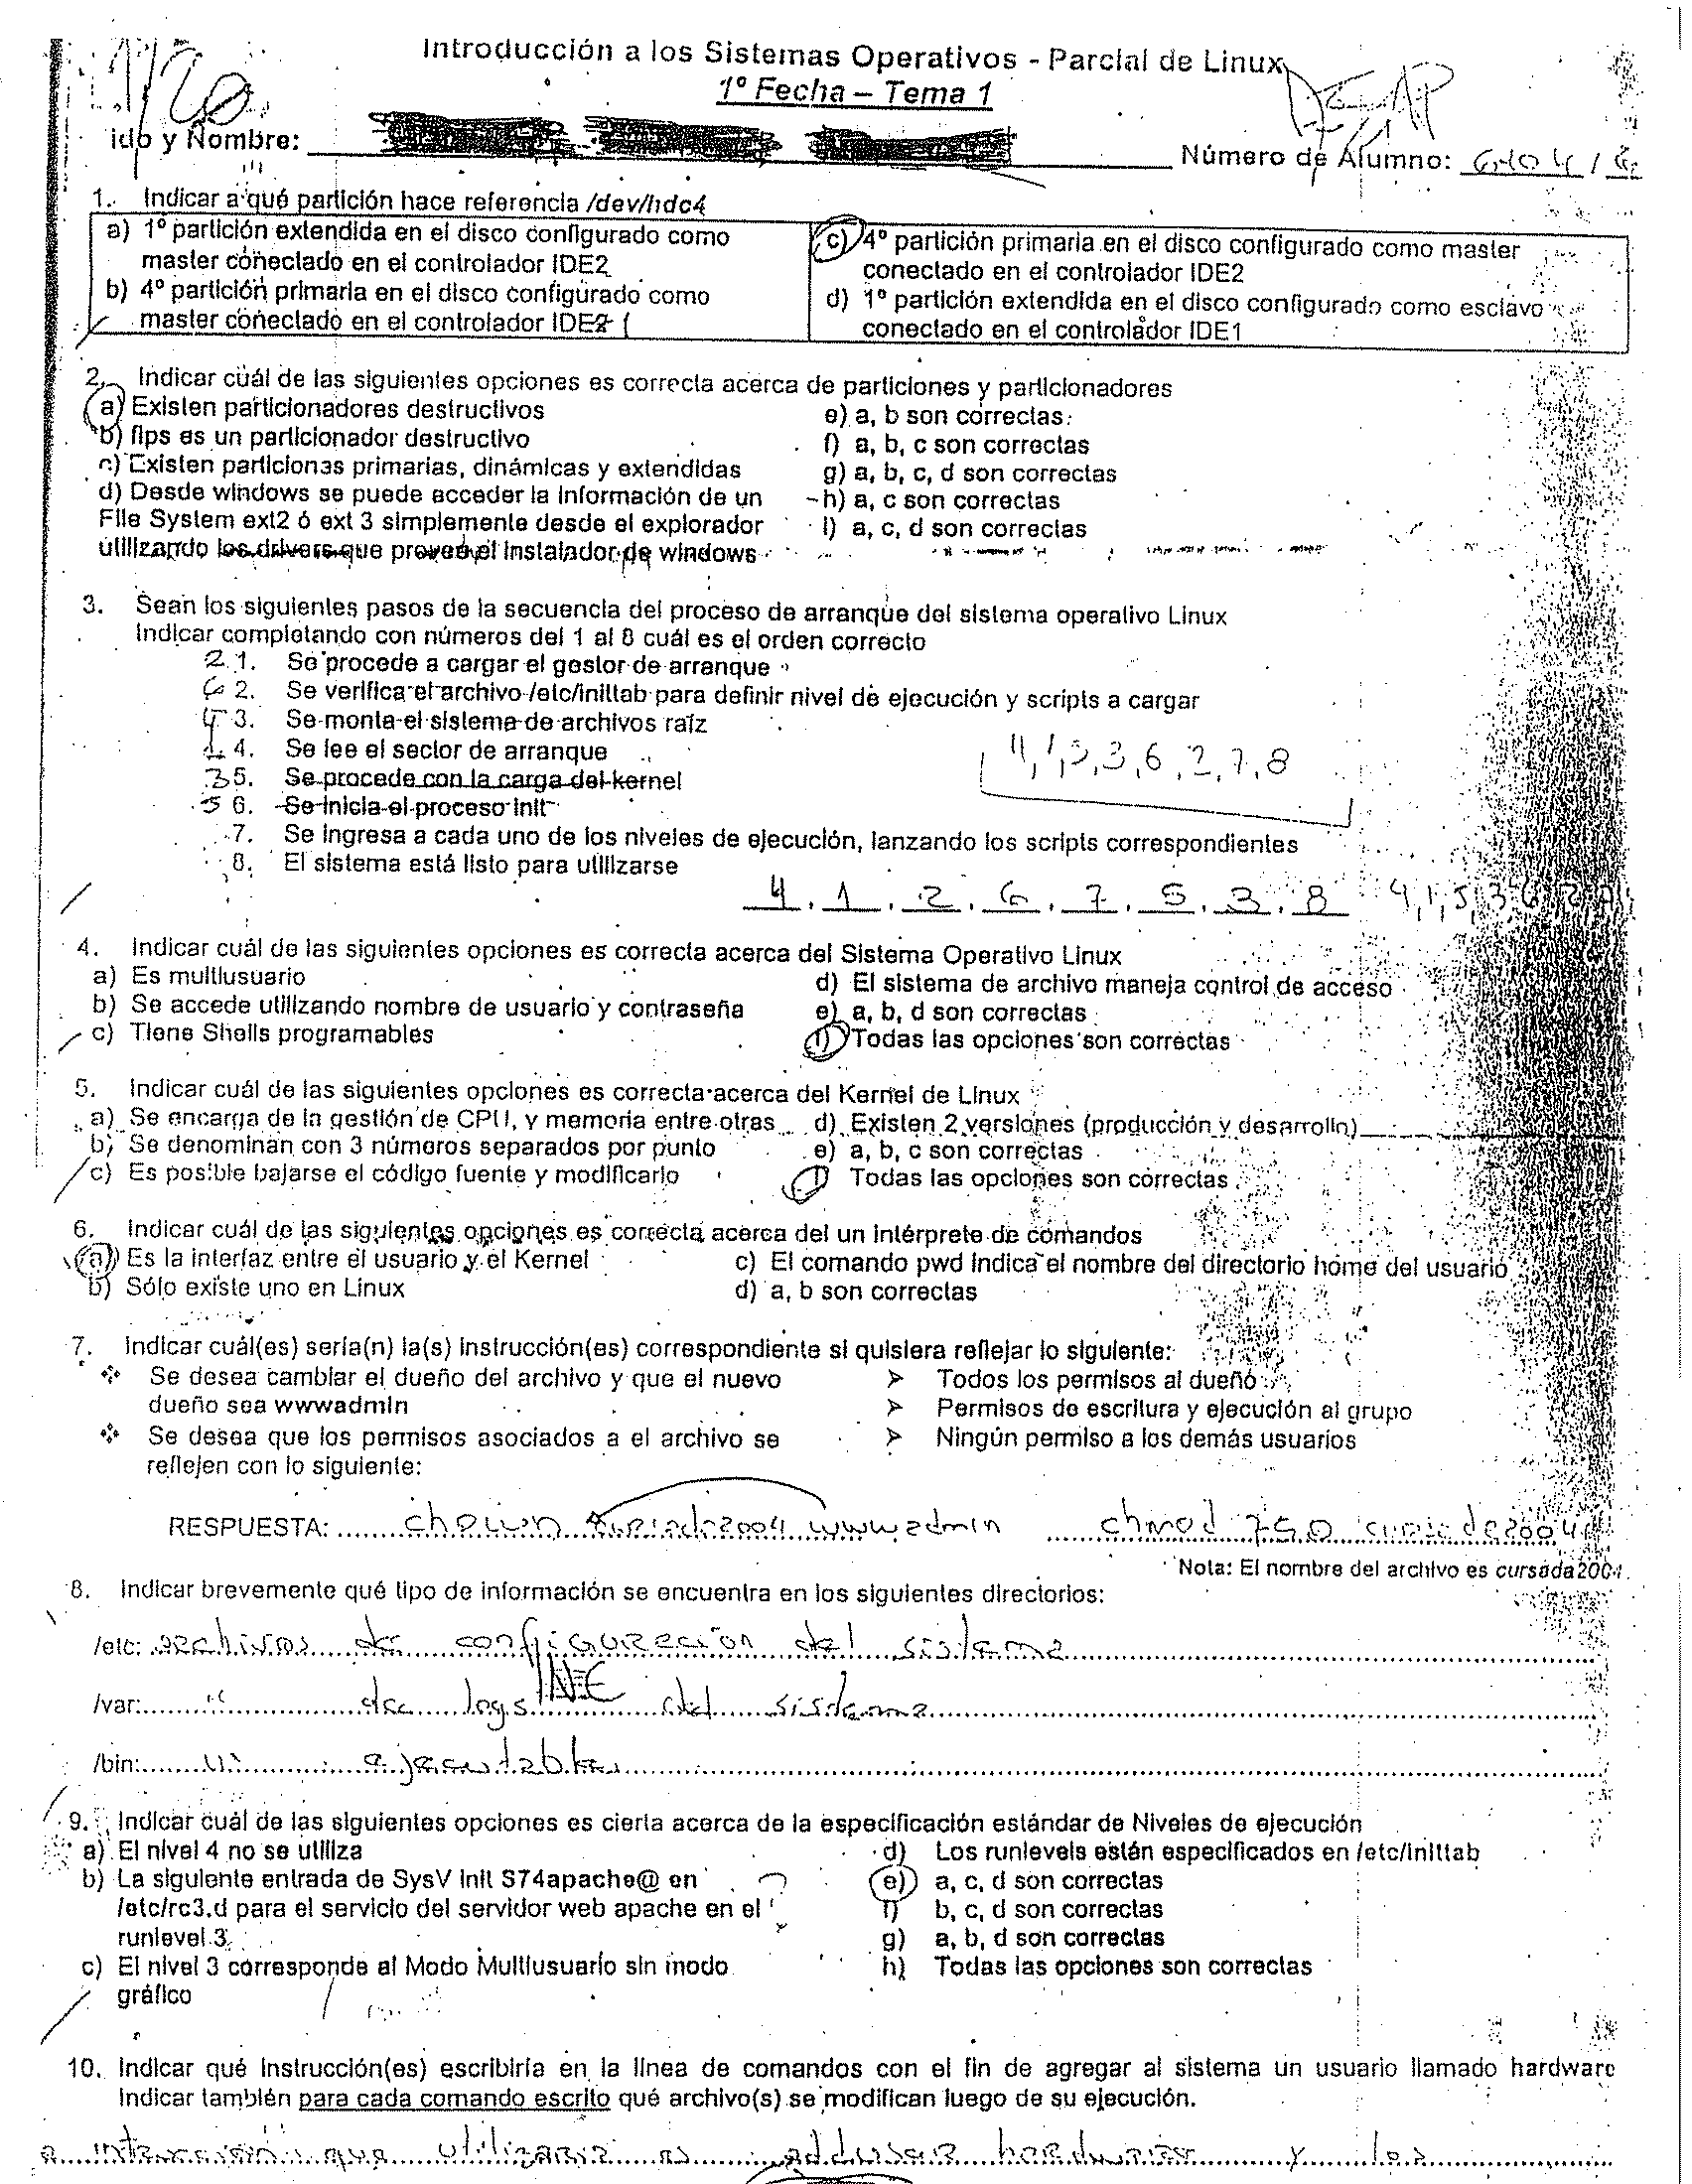 Introducción a los Sistemas Operativos - Parcial de Linux
1º Fecha – Tema 1
ido y Nombre:
Número de Alumno:
1. Indicar a qué partición hace referencia /dev/hdc4
a) 1º partición extendida en el disco configurado como
master conectado en el controlador IDE2
b) 4º partición primaria en el disco configurado como
master conectado en el controlador IDE2 1
c) 4º partición primaria en el disco configurado como master
conectado en el controlador IDE2
d) 1º partición extendida en el disco configurado como esclavo
conectado en el controlador IDE1
2. Indicar cuál de las siguientes opciones es correcta acerca de particiones y particionadores
a) Existen particionadores destructivos
b) fips es un particionador destructivo
c) Existen particiones primarias, dinámicas y extendidas
d) Desde windows se puede acceder la información de un
File System ext2 ó ext 3 simplemente desde el explorador
utilizando los drivers que provee el instalador de windows
e) a, b son correctas
f) a, b, c son correctas
g) a, b, c, d son correctas
h) a, c son correctas
i) a, c, d son correctas
3. Sean los siguientes pasos de la secuencia del proceso de arranque del sistema operativo Linux
Indicar completando con números del 1 al 8 cuál es el orden correcto
2 1. Se procede a cargar el gestor de arranque
6 2. Se verifica el archivo /etc/inittab para definir nivel de ejecución y scripts a cargar
4 3. Se monta el sistema de archivos raíz
1 4. Se lee el sector de arranque
3 5. Se procede con la carga del kernel
5 6. Se inicia el proceso init
7. Se ingresa a cada uno de los niveles de ejecución, lanzando los scripts correspondientes
8. El sistema está listo para utilizarse
4, 1, 5, 3, 6, 2, 7, 8
4, 1, 2, 6, 7, 5, 3, 8 4, 1, 5, 3, 6, 2
4. Indicar cuál de las siguientes opciones es correcta acerca del Sistema Operativo Linux
a) Es multiusuario
b) Se accede utilizando nombre de usuario y contraseña
c) Tiene Shells programables
d) El sistema de archivo maneja control de acceso
e) a, b, d son correctas
f) Todas las opciones son correctas
5. Indicar cuál de las siguientes opciones es correcta acerca del Kernel de Linux
a) Se encarga de la gestión de CPU, y memoria entre otras
b) Se denominan con 3 números separados por punto
c) Es posible bajarse el código fuente y modificarlo
d) Existen 2 versiones (producción y desarrollo)
e) a, b, c son correctas
f) Todas las opciones son correctas
6. Indicar cuál de las siguientes opciones es correcta acerca del un intérprete de comandos
a) Es la interfaz entre el usuario y el Kernel
b) Sólo existe uno en Linux
c) El comando pwd indica el nombre del directorio home del usuario
d) a, b son correctas
7. Indicar cuál(es) sería(n) la(s) instrucción(es) correspondiente si quisiera reflejar lo siguiente:
❖ Se desea cambiar el dueño del archivo y que el nuevo
dueño sea wwwadmin
❖ Se desea que los permisos asociados a el archivo se
reflejen con lo siguiente:
➢ Todos los permisos al dueño
➢ Permisos de escritura y ejecución al grupo
➢ Ningún permiso a los demás usuarios
RESPUESTA: chown cursada2004 wwwadmin chmod 750 cursada2004
Nota: El nombre del archivo es cursada2004.
8. Indicar brevemente qué tipo de información se encuentra en los siguientes directorios:
/etc: archivos de configuracion del sistema
/var: " de logs del sistema
/bin: " ejecutables
9. Indicar cuál de las siguientes opciones es cierta acerca de la especificación estándar de Niveles de ejecución
a) El nivel 4 no se utiliza
b) La siguiente entrada de SysV Init S74apache@ en
/etc/rc3.d para el servicio del servidor web apache en el
runlevel 3
c) El nivel 3 corresponde al Modo Multiusuario sin modo
gráfico
d) Los runlevels están especificados en /etc/inittab
e) a, c, d son correctas
f) b, c, d son correctas
g) a, b, d son correctas
h) Todas las opciones son correctas
10. Indicar qué instrucción(es) escribiría en la línea de comandos con el fin de agregar al sistema un usuario llamado hardware
Indicar también para cada comando escrito qué archivo(s) se modifican luego de su ejecución.
que utilizaria es adduser hardware y los